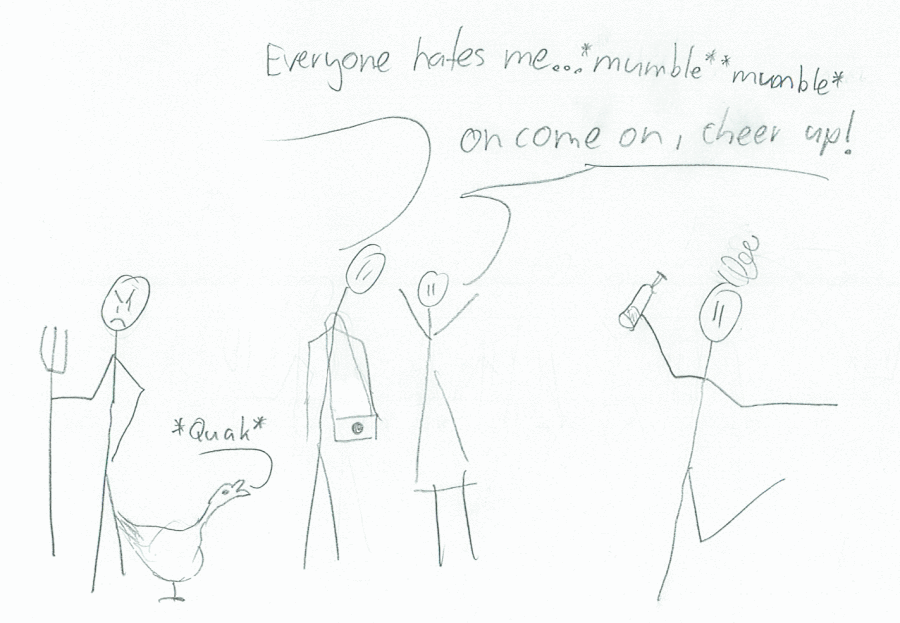 Everyone hates me...*mumble* *mumble*
on come on, cheer up!
*Quak*